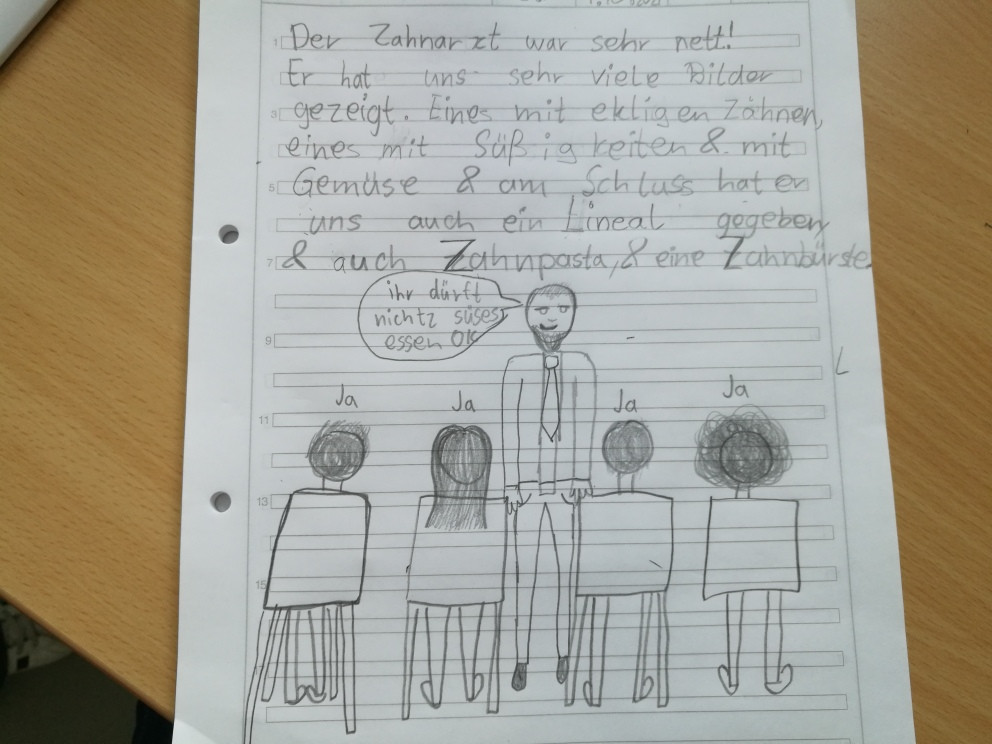 Der Zahnarzt war sehr nett!
Er hat uns sehr viele Bilder
gezeigt. Eines mit ekligen Zähnen,
eines mit Süßigkeiten & mit
Gemüse & am Schluss hat er
uns auch ein Lineal gegeben
& auch Zahnpasta, & eine Zahnbürste
ihr dürft
nichtz süses
essen OK
Ja
Ja
Ja
Ja
1
3
5
7
9
11
13
15